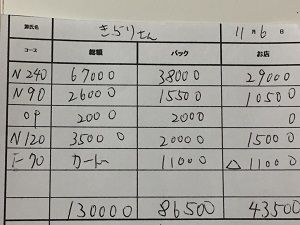 源氏名 きらりさん 11月6日
コース 総額 バック お店
N240 67000 38000 29000
N90 26000 15500 10500
OP 2000 2000 0
N120 35000 20000 15000
F70 カート 11000 △11000
130000 86500 43500